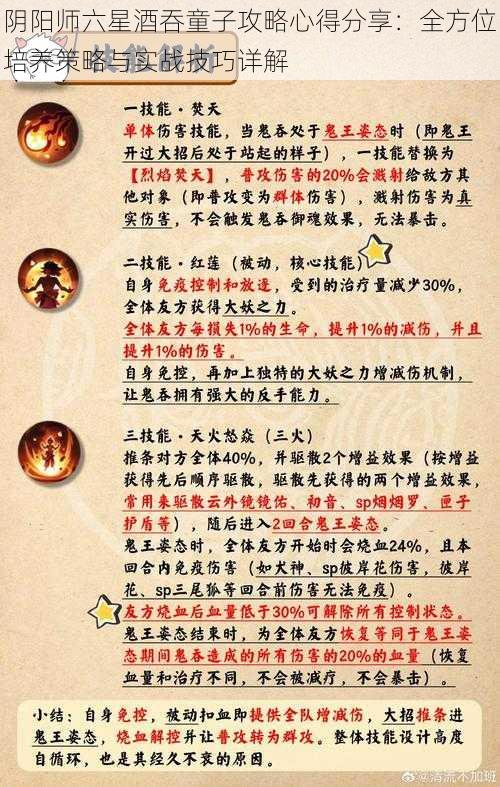 阴阳师六星酒吞童子攻略心得分享：全方位
培养策略与实战技巧详解
一技能·焚天
单体伤害技能，当鬼吞处于鬼王姿态时（即鬼王
开过大招后处于站起的样子），一技能替换为
【烈焰焚天】，普攻伤害的20%会溅射给敌方其
他对象（即普攻变为群体伤害），溅射伤害为真
实伤害，不会触发鬼吞御魂效果，无法暴击。
二技能·红莲（被动，核心技能）
自身免疫控制和放逐，受到的治疗量减少30%，
全体友方获得大妖之力。
全体友方每损失1%的生命，提升1%的减伤，并且
提升1%的伤害。
自身免控，再加上独特的大妖之力增减伤机制，
让鬼吞拥有强大的反手能力。
三技能·天火怒焱（三火）
推条对方全体40%，并驱散2个增益效果（按增益
获得先后顺序驱散，驱散先获得的两个增益效果，
常用来驱散云外镜镜佑、初音、sp烟烟罗、匣子
护盾等），随后进入2回合鬼王姿态。
鬼王姿态时，全体友方开始时会烧血24%，且本
回合内免疫伤害（如犬神、sp彼岸花伤害，彼岸
花、sp三尾狐等回合前伤害无法免疫）。
友方烧血后血量低于30%可解除所有控制状态。
鬼王姿态结束时，为全体友方恢复等同于鬼王姿
态期间鬼吞造成的所有伤害的20%的血量（恢复
血量和治疗不同，不会被减疗，不会暴击）。
小结：自身免控，被动扣血即提供全队增减伤，大招推条进
鬼王姿态，烧血解控并让普攻转为群攻。整体技能设计高度
自循环，也是其经久不衰的原因。
@清流不加班